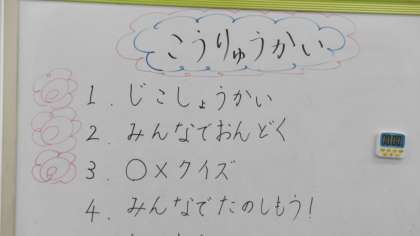 こうりゅうかい
1. じこしょうかい
2. みんなでおんどく
3. ○×クイズ
4. みんなでたのしもう!